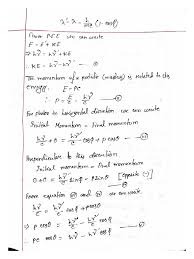 λ'-λ = h/m₀c (1-cosφ)
From PEC we can write
E = E' + KE
⇒ hν = hν' + KE
∴ KE = hν - hν'
The momentum of a particle (massless) is related to its
energy: E = Pc
∴ p = E/c = hν/c
For photon to horizontal direction we can write
Initial Momentum = Final momentum
hν/c + 0 = hν'/c cosφ + p cosθ
Perpendicular to this direction
Initial momentum = Final momentum
0 + 0 = hν'/c sinφ - p sinθ
From equation and we can write
hν/c = hν'/c cosφ + p cosθ
⇒ p cosθ = hν/c - hν'/c cosφ
⇒ pc cosθ = hν - hν' cosφ